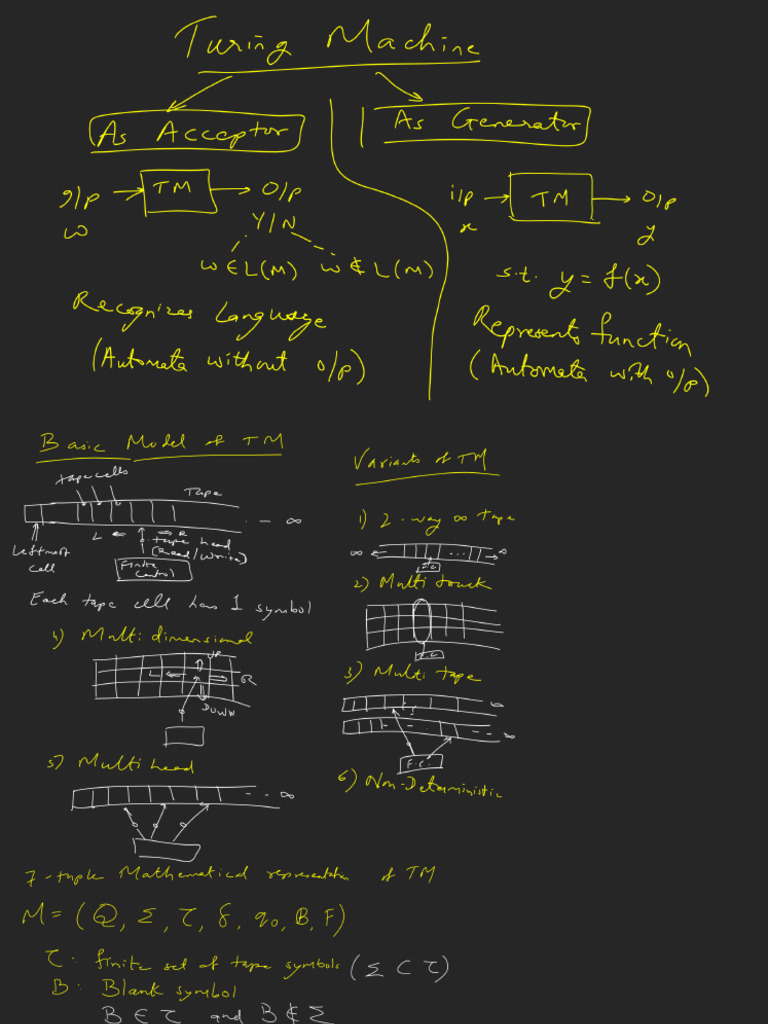 Turing Machine
As Acceptor
As Generator
I/p → TM → O/p
w
Y/N
w ∈ L(M) w ∉ L(M)
Recognizes Language
(Automata without o/p)
i/p → TM → O/p
x y
s.t. y = f(x)
Represents function
(Automata with o/p)
Basic Model of TM
tape cells
Tape
- - ∞
L ← → R
Leftmost
cell
tape head
(Read/Write)
Finite
Control
Each tape cell has 1 symbol
Variants of TM
1) 2-way ∞ tape
∞ ← ... → ∞
F.C.
2) Multi track
F.C.
3) Multi tape
∞
- - - ∞
F.C.
4) Multi dimensional
UP
L ← → R
DOWN
5) Multi head
- - ∞
6) Non-Deterministic
7-tuple Mathematical representation of TM
M = (Q, Σ, τ, δ, q₀, B, F)
τ : finite set of tape symbols (Σ ⊂ τ)
B : Blank symbol
B ∈ τ and B ∉ Σ